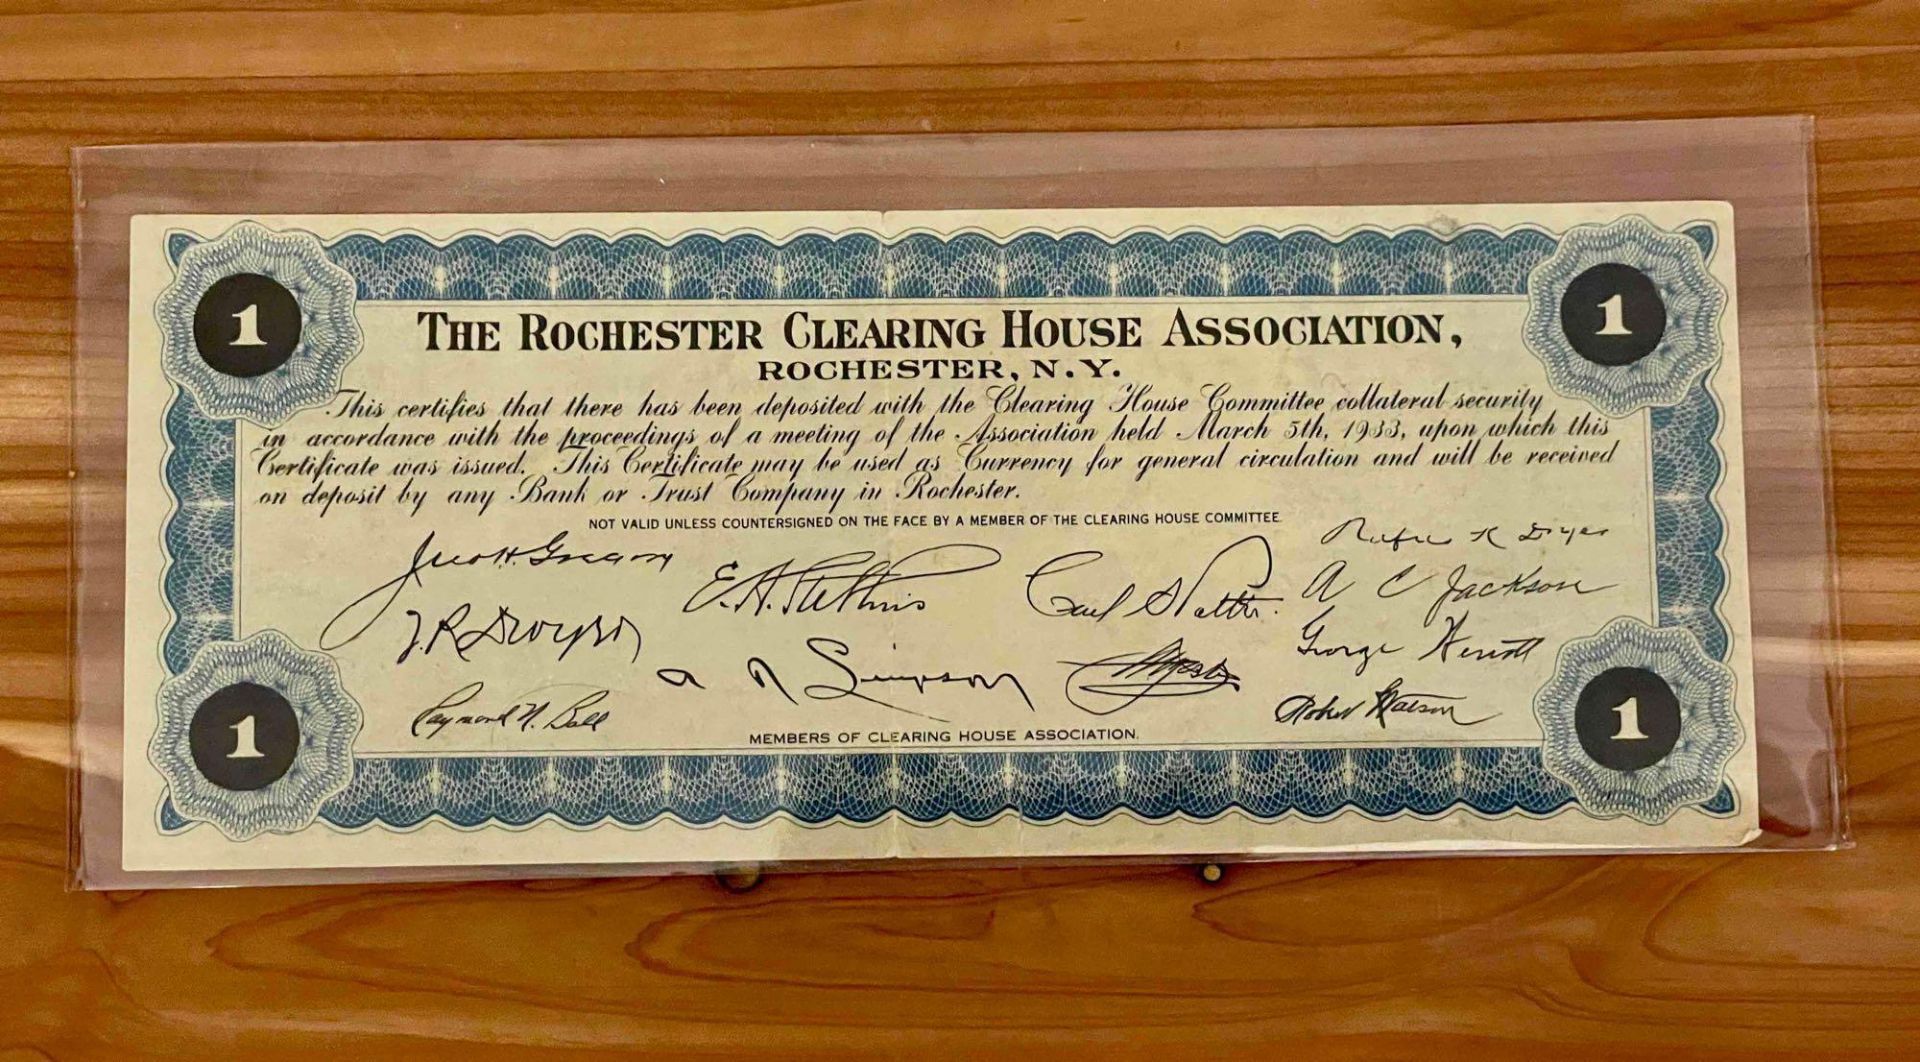 1 1
THE ROCHESTER CLEARING HOUSE ASSOCIATION,
ROCHESTER, N.Y.
This certifies that there has been deposited with the Clearing House Committee collateral security
in accordance with the proceedings of a meeting of the Association held March 5th, 1933, upon which this
Certificate was issued. This Certificate may be used as Currency for general circulation and will be received
on deposit by any Bank or Trust Company in Rochester.
NOT VALID UNLESS COUNTERSIGNED ON THE FACE BY A MEMBER OF THE CLEARING HOUSE COMMITTEE.
Rufus K Dryer
Jno. H. Gregory
E. A. Carl
A C Jackson
George
Simpson
Raymond N. Ball
Robert Watson
MEMBERS OF CLEARING HOUSE ASSOCIATION.
1 1